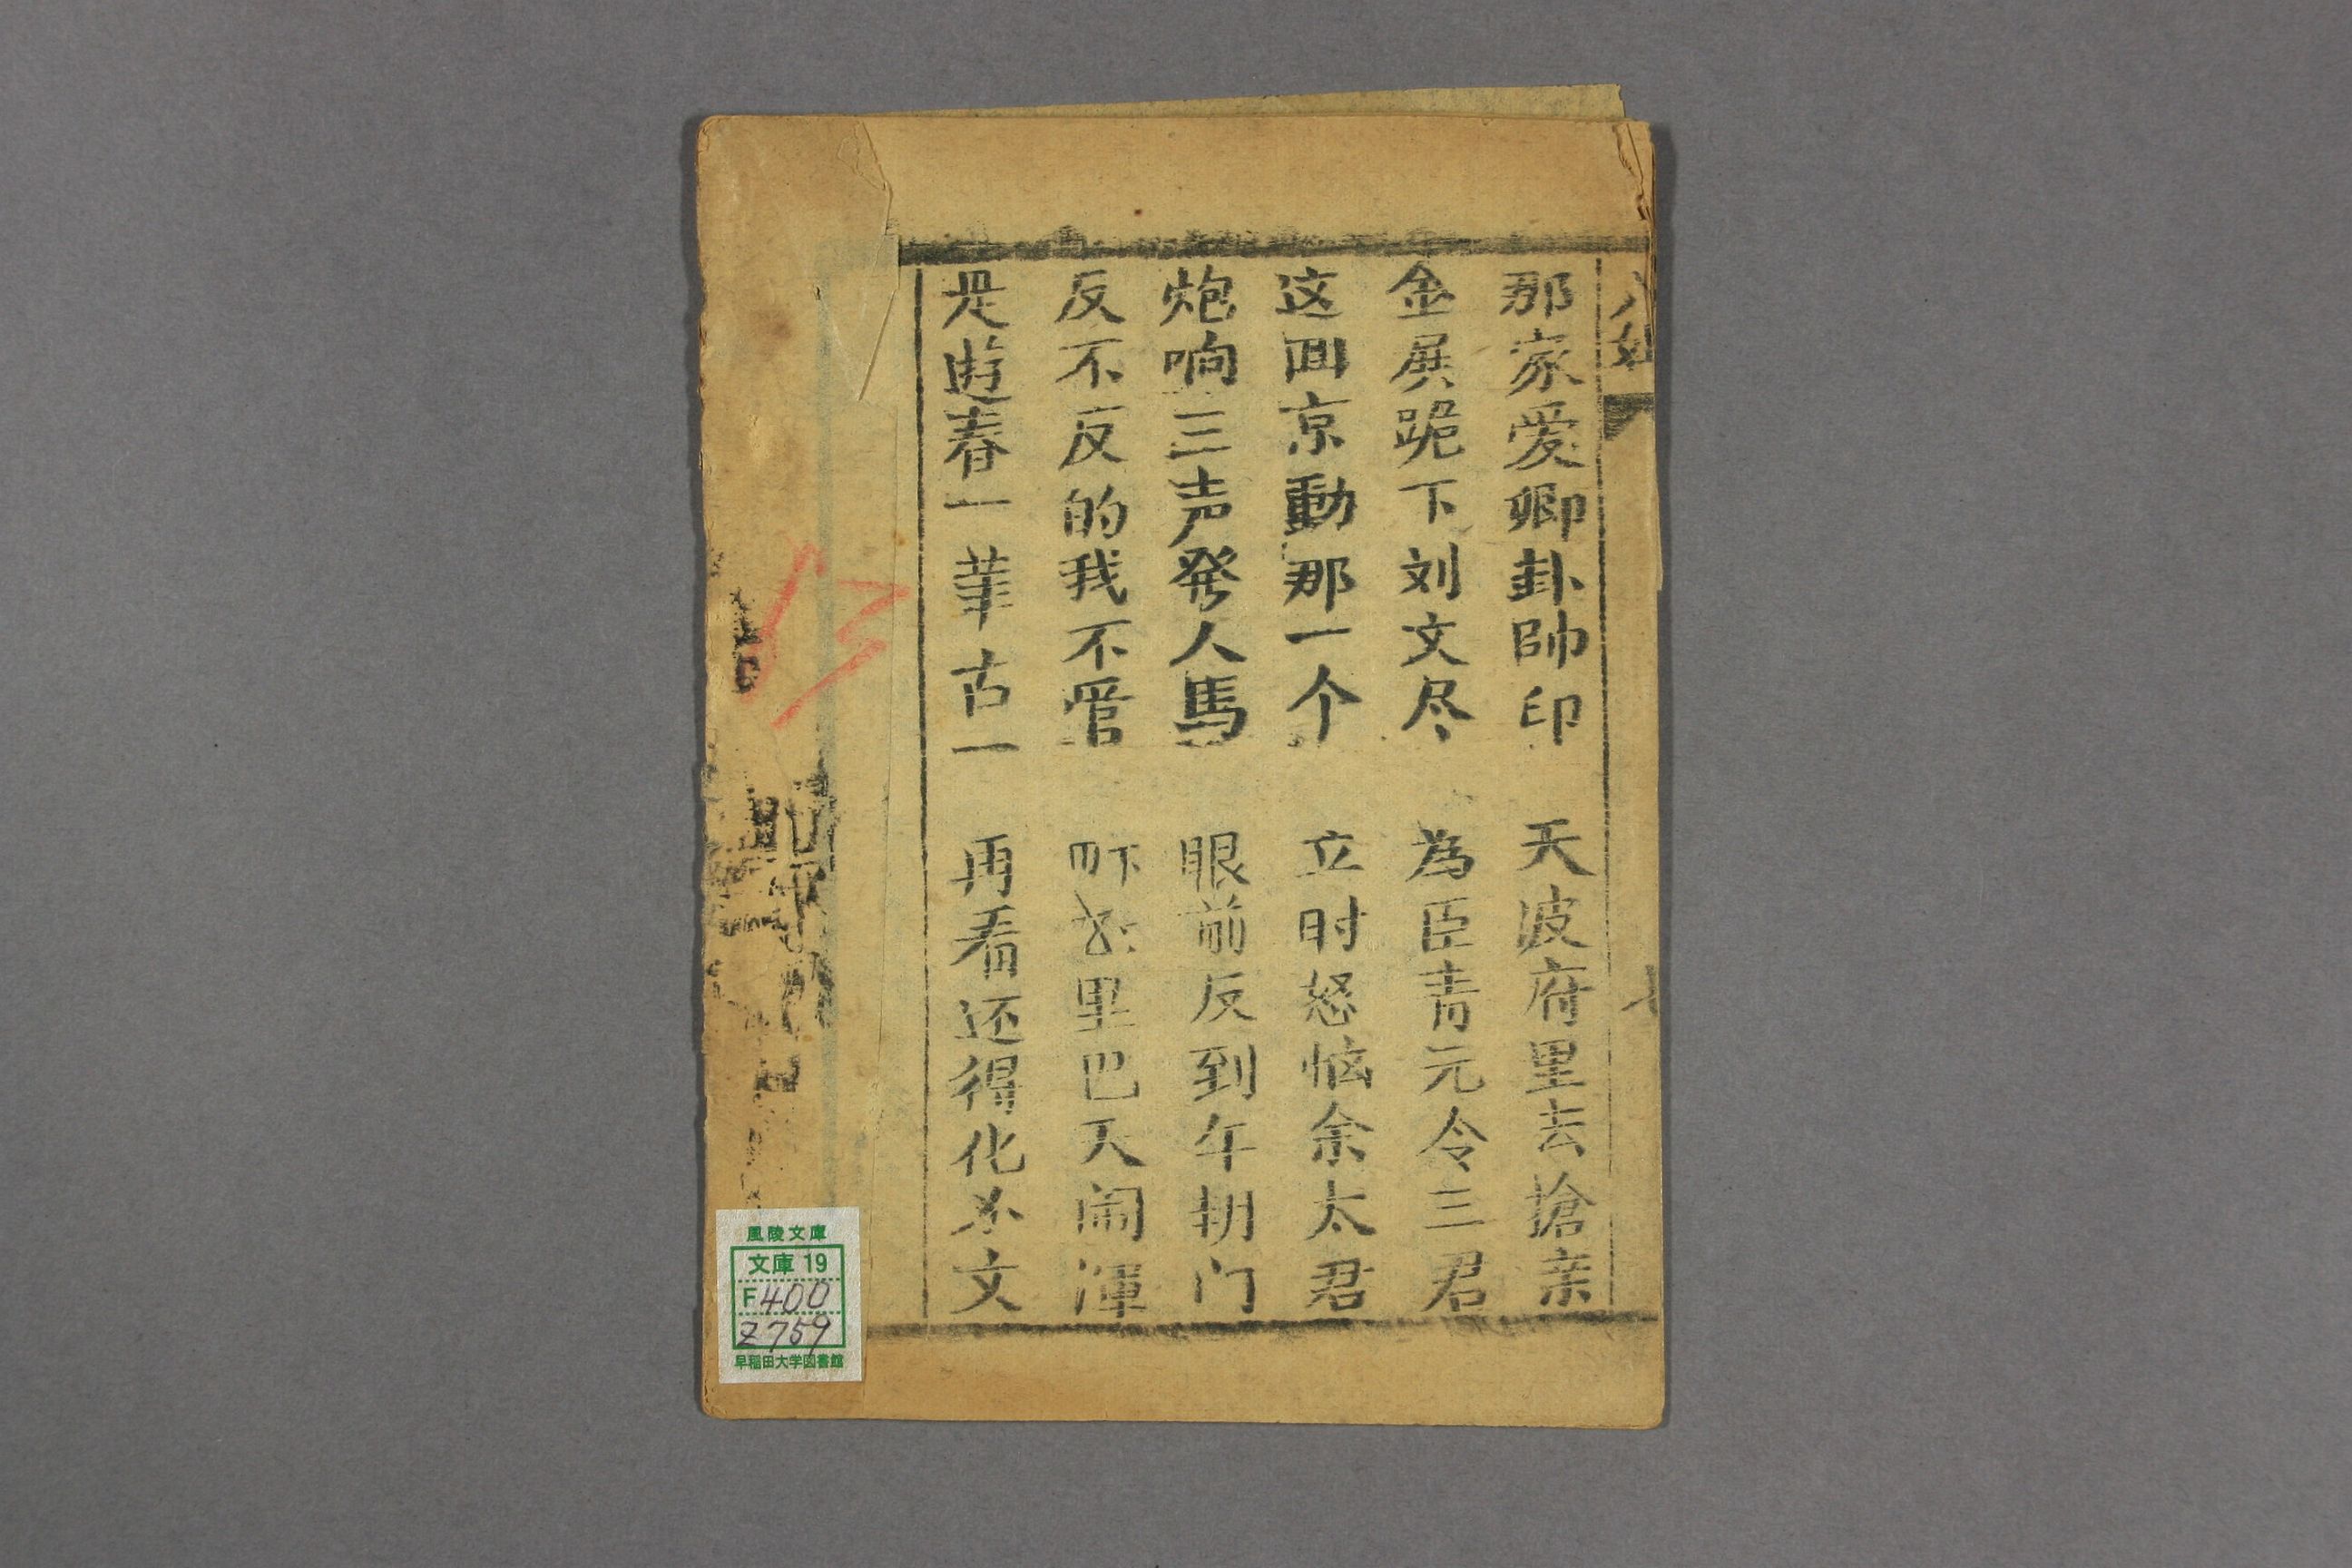 那家爱卿卦帥印　天波府里去搶亲
金展跪下刘文尽　為臣青元令三君
这回京動那一个　立时怒恼余太君
炮响三声発人馬　眼前反到午朝门
反不反的我不管　吓　里巴天闹渾
是遊春一華古一　再看还得化本文
風陵文庫
文庫 19
F400
Z759
早稲田大学図書館